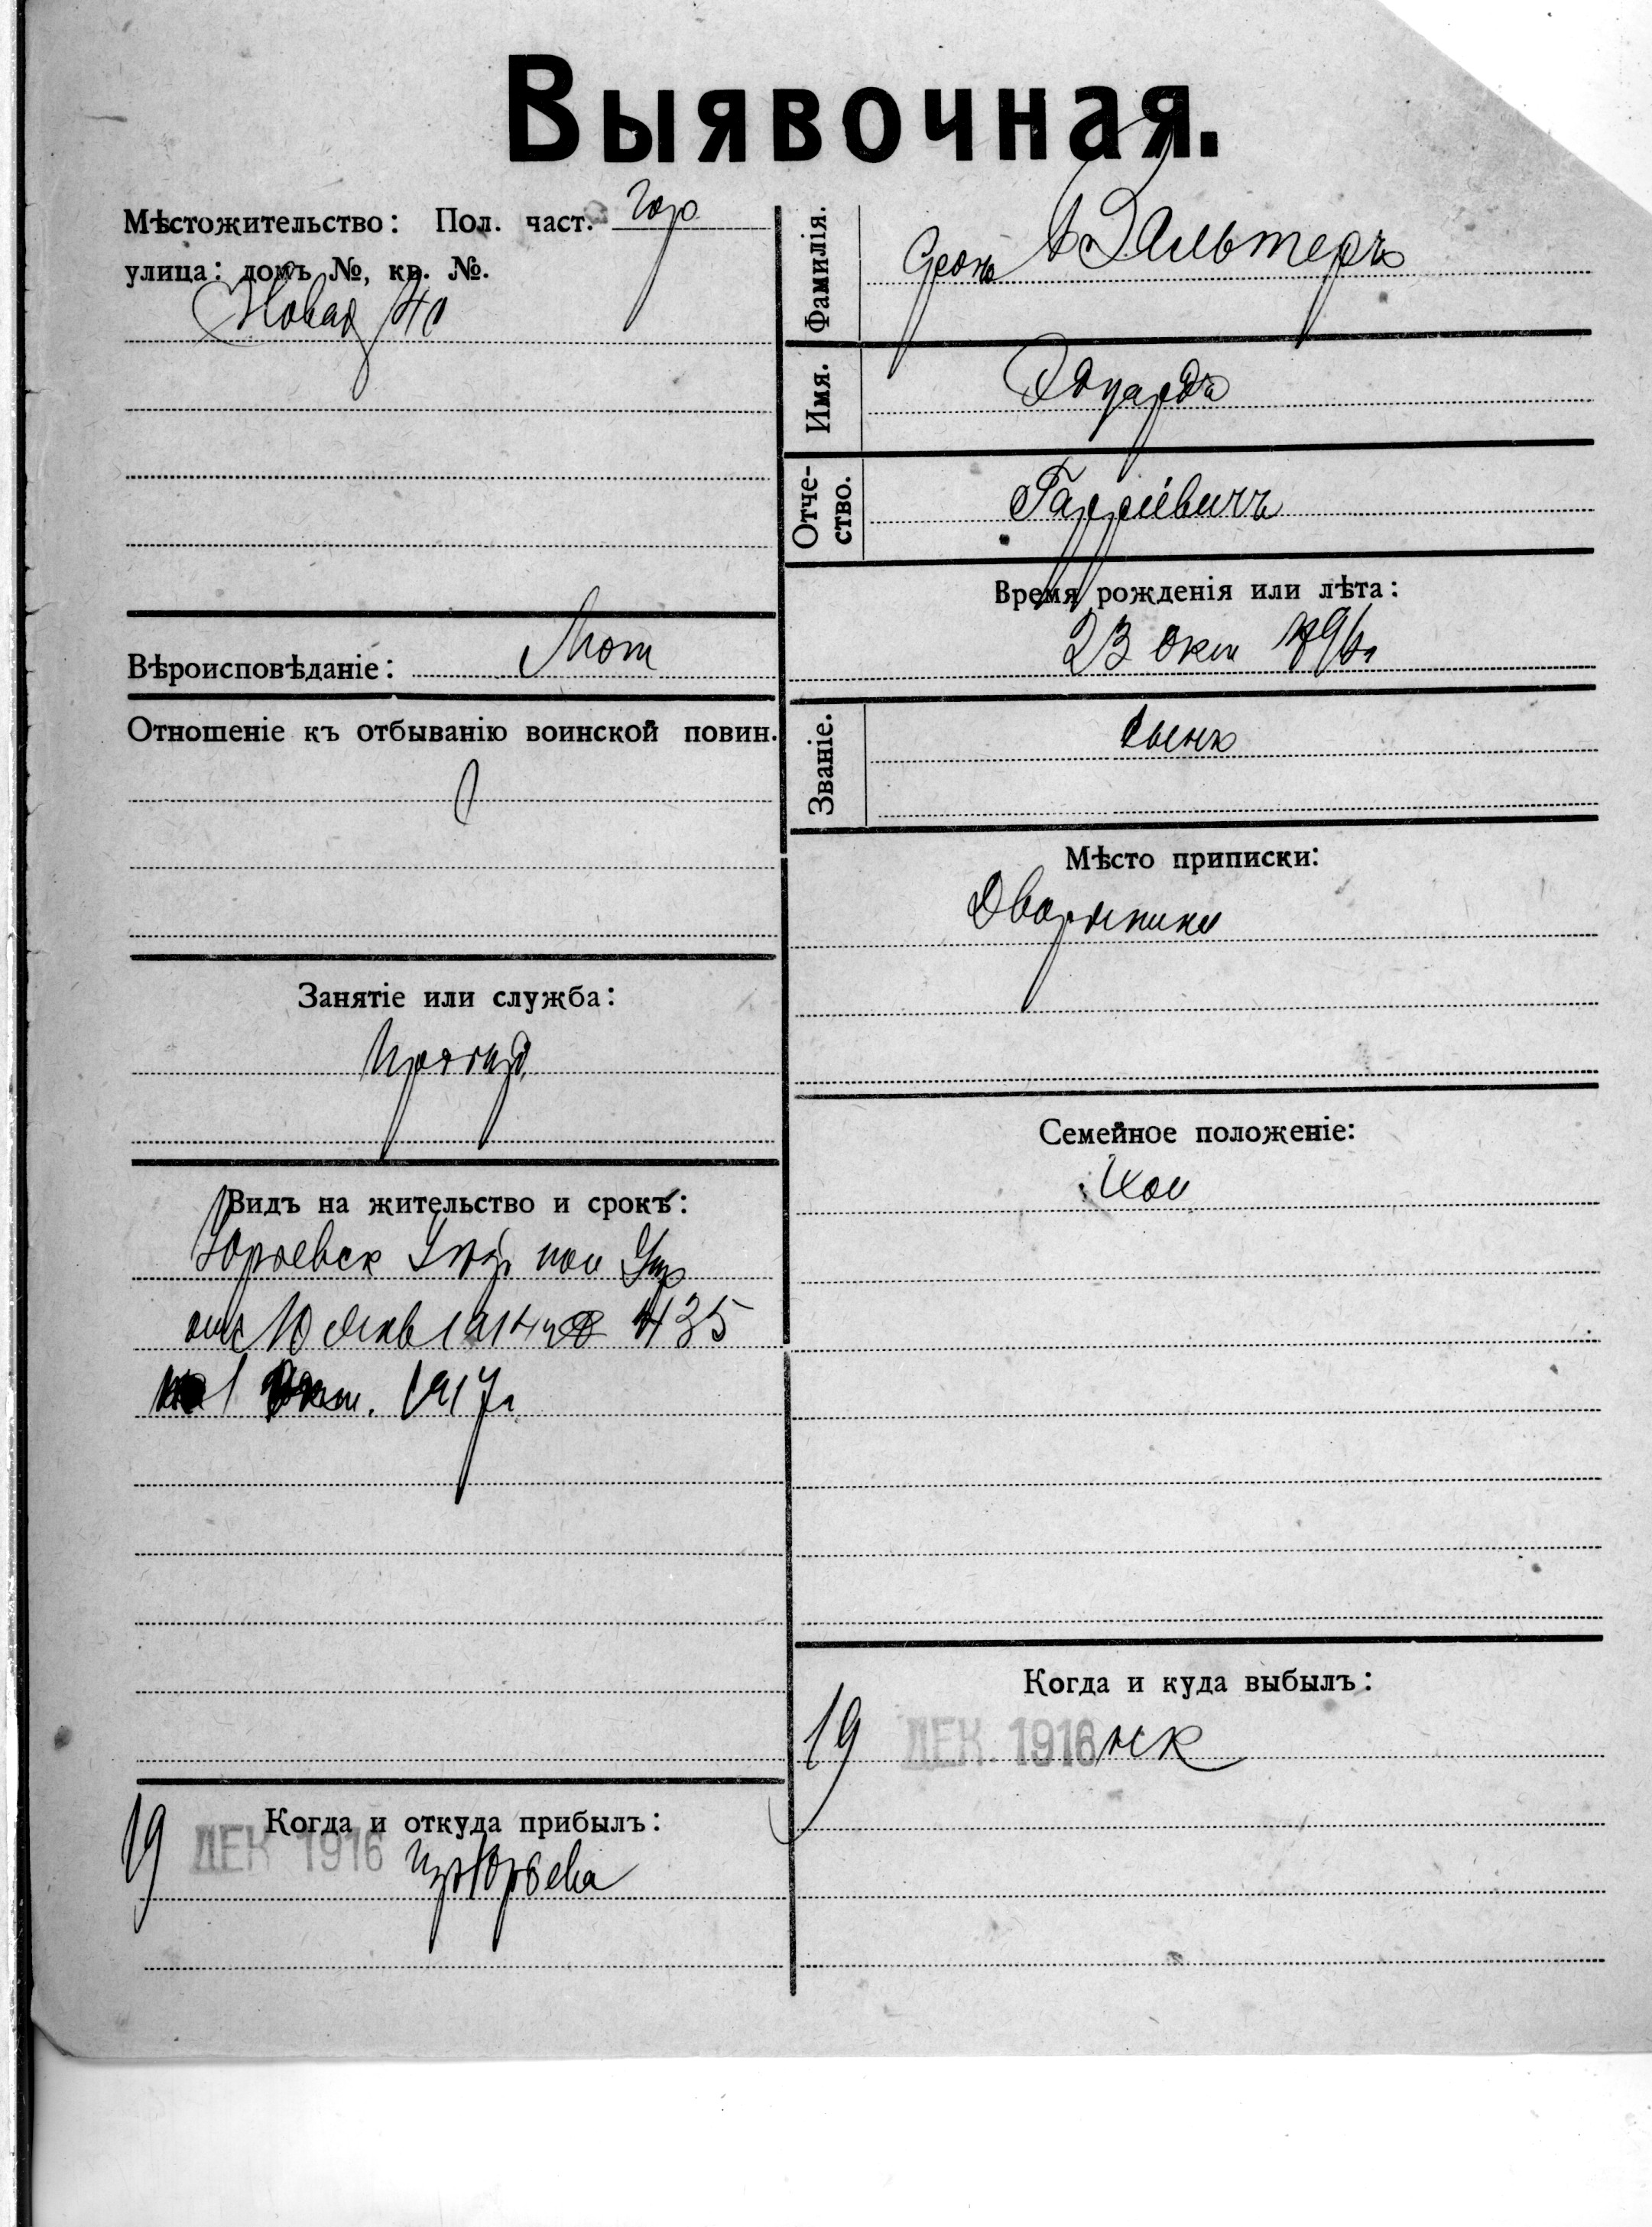 Выявочная.
Мѣстожительство: Пол. част. гор
улица: домъ №, кв. №.
Новая
Вѣроисповѣданіе: Лют
Отношеніе къ отбыванію воинской повин.
Занятіе или служба:
Видъ на жительство и срокъ:
Юрьевск
10 1914 № 435
1 1917г
19 ДЕК 1916 Когда и откуда прибылъ:
изъ Юрьева
Фамилія. фонъ Вальтеръ
Имя. Эдуардъ
Отче-
ство. Гарріевичъ
Время рожденія или лѣта:
23 окт
Званіе. сынъ
Мѣсто приписки:
Дворянина
Семейное положеніе:
хол
Когда и куда выбылъ:
19 ДЕК. 1916